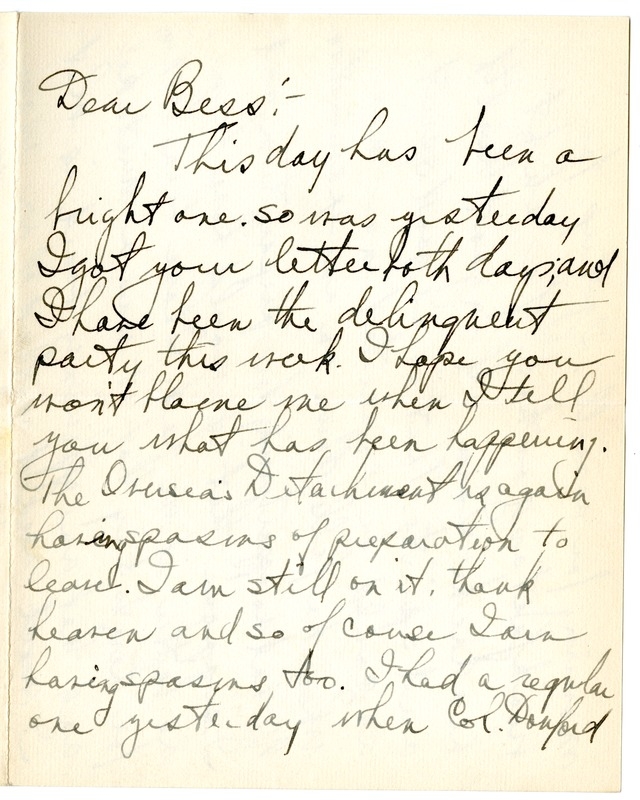 Dear Bess:-
This day has been a
bright one. So was yesterday
I got your letter both days; and
I have been the delinquent
party this week. I hope you
won't blame me when I tell
you what has been happening.
The Overseas Detachment is again
having spasms of preparation to
leave. I am still on it, thank
heaven and so of couse I am
having spasms too. I had a regular
one yesterday when Col. Danford